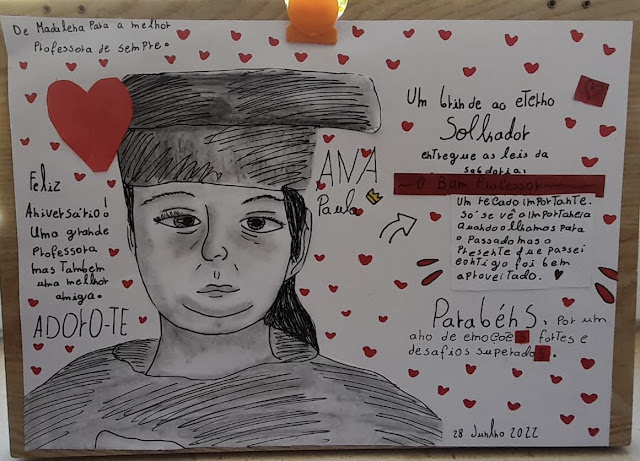 De Madalena Para a melhor
Professora de sempre.
Feliz
Aniversário!
Uma grande
Professora
mas também
uma melhor
amiga.
ADORO-TE
ANA
Paula
Um brinde ao eterno
Solhador
entregue as leis da
sabdoria:
O Bom Professor
Um recado importante.
Só se vê a importância
quando olhamos para
o passado mas o
Presente que passei
contigo foi bem
aproveitado.
Parabéns, por um
ano de emoções fortes e
desafios superados.
28 Junho 2022